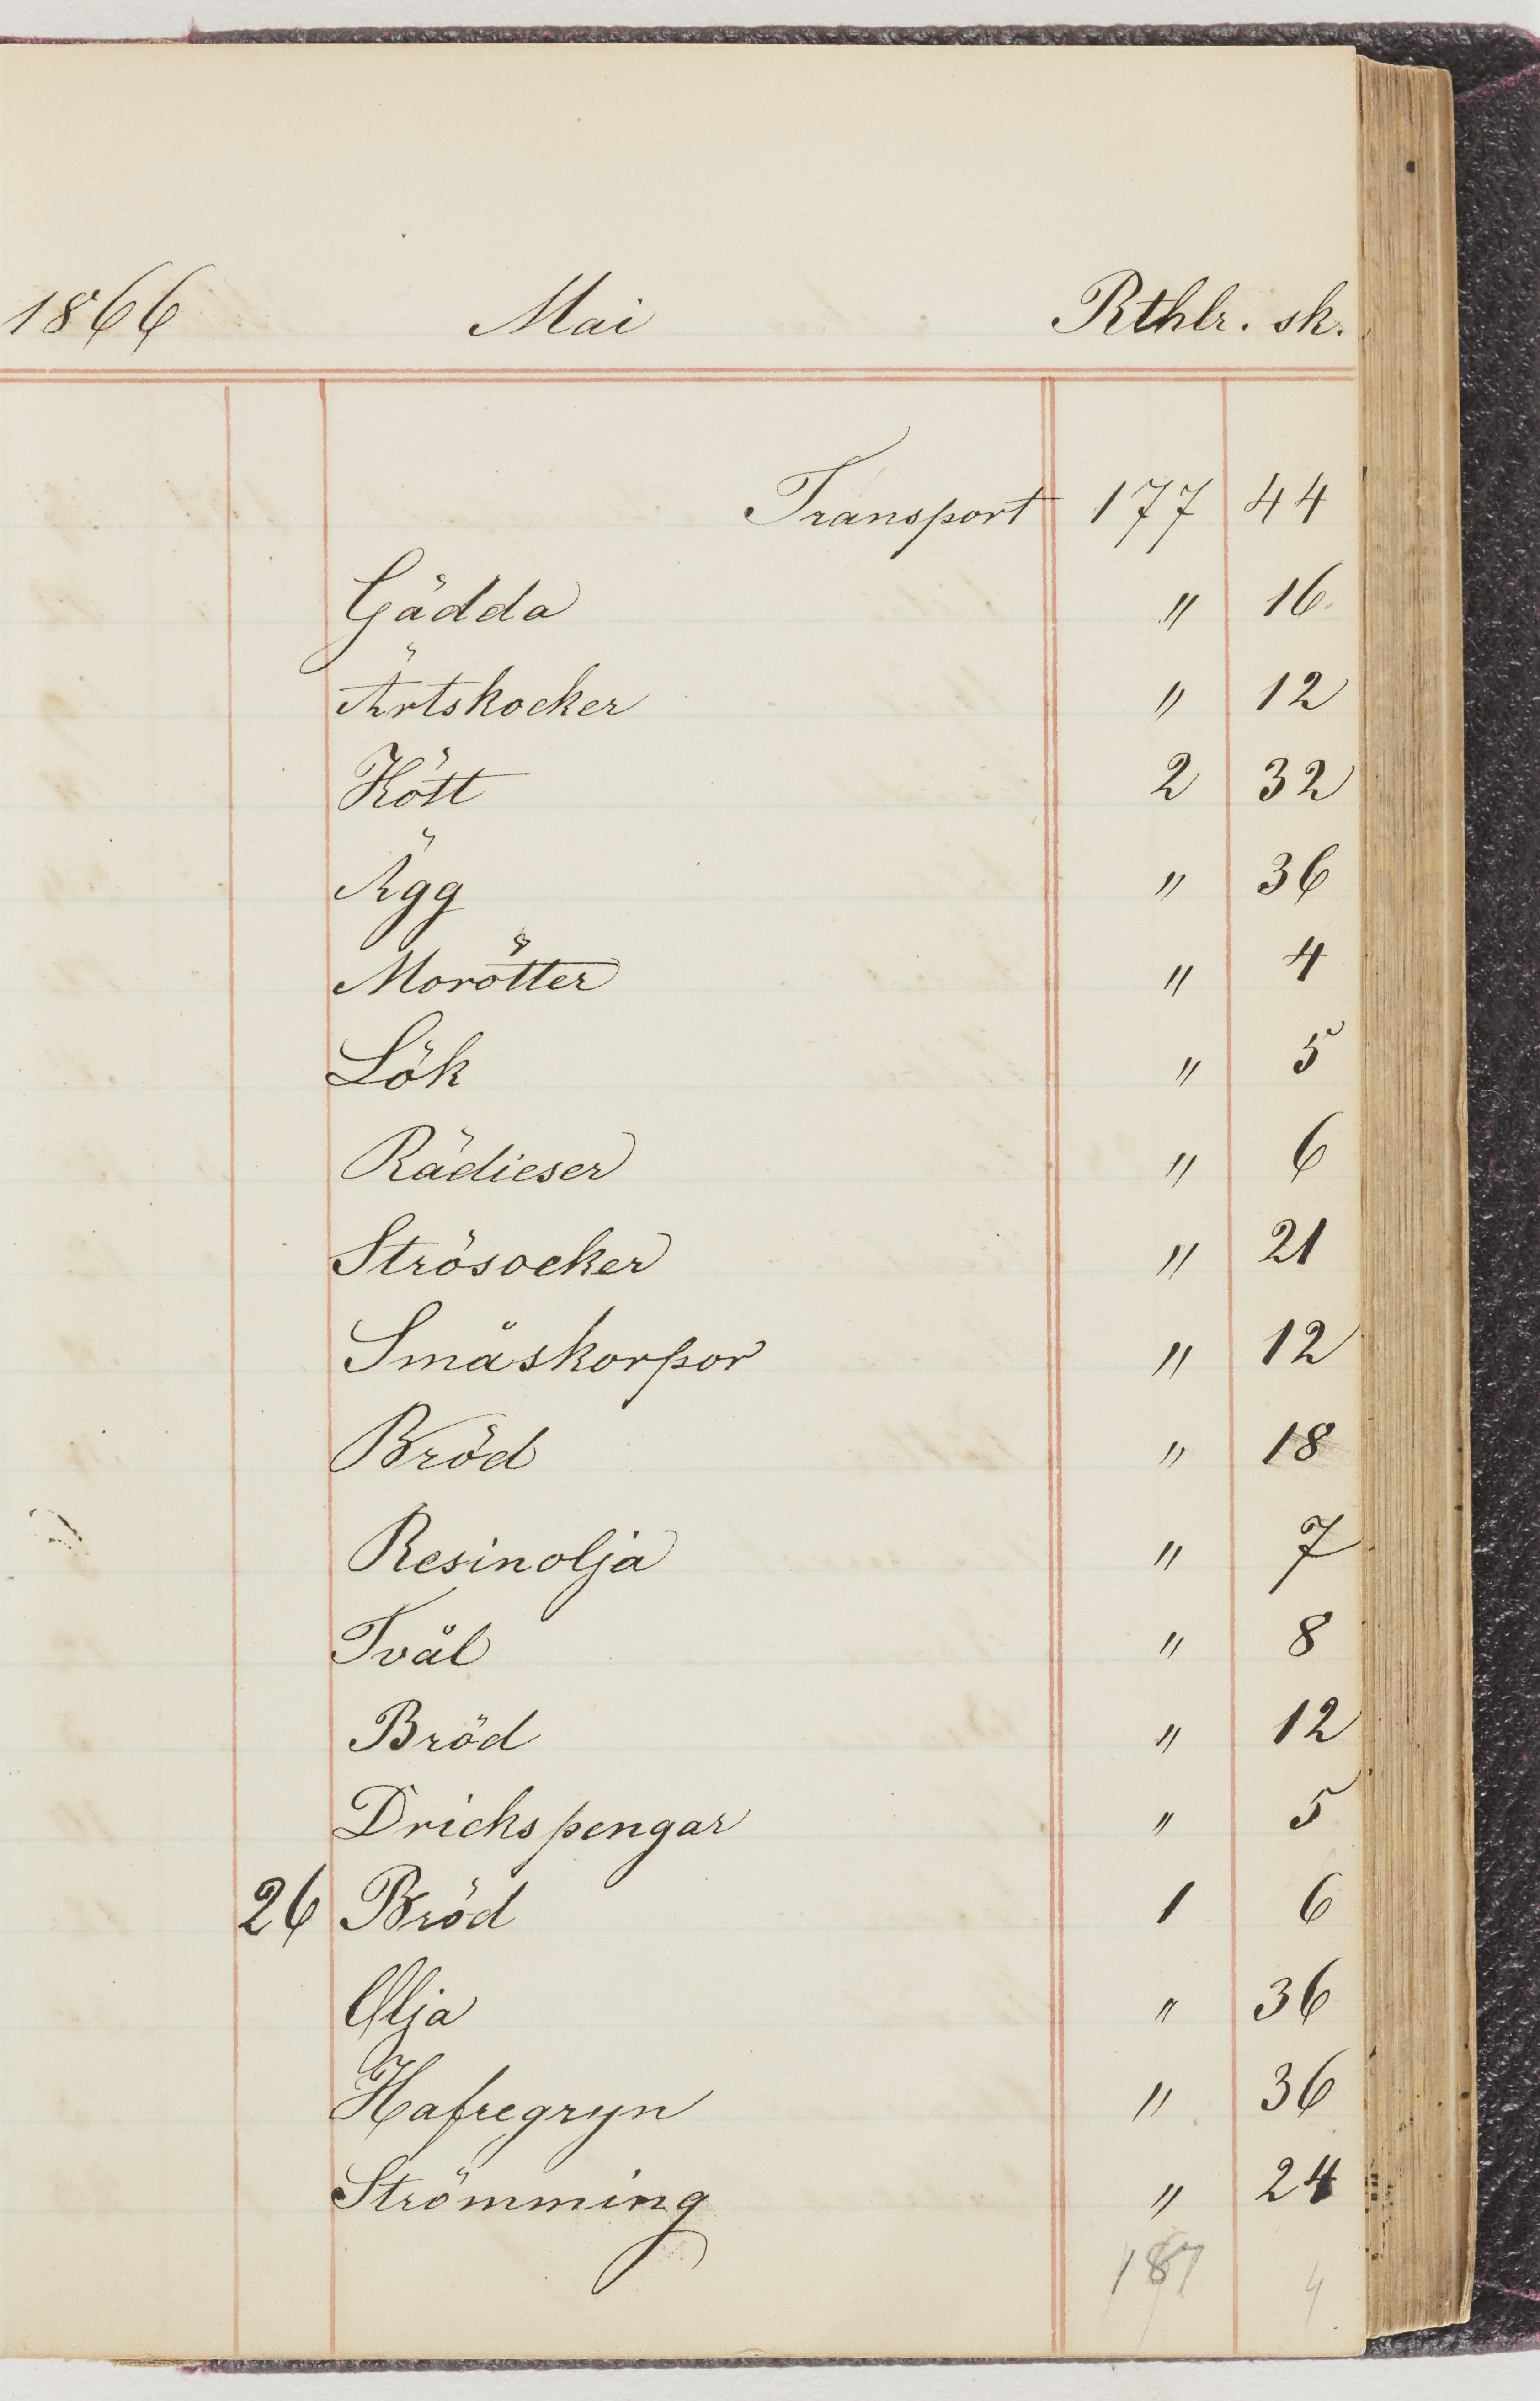 1866 Mai Rthlr. sk.
Transport 177 44
Gädda " 16
Ärtskocker " 12
Kött 2 32
Ägg " 36
Morötter " 4
Lök " 5
Rädieser " 6
Strösocker " 21
Småskorpor " 12
Bröd " 18
Resinolja " 7
Tvål " 8
Bröd " 12
Drickspengar " 5
26 Bröd 1 6
Olja " 36
Hafregryn " 36
Strömming " 24
187 4